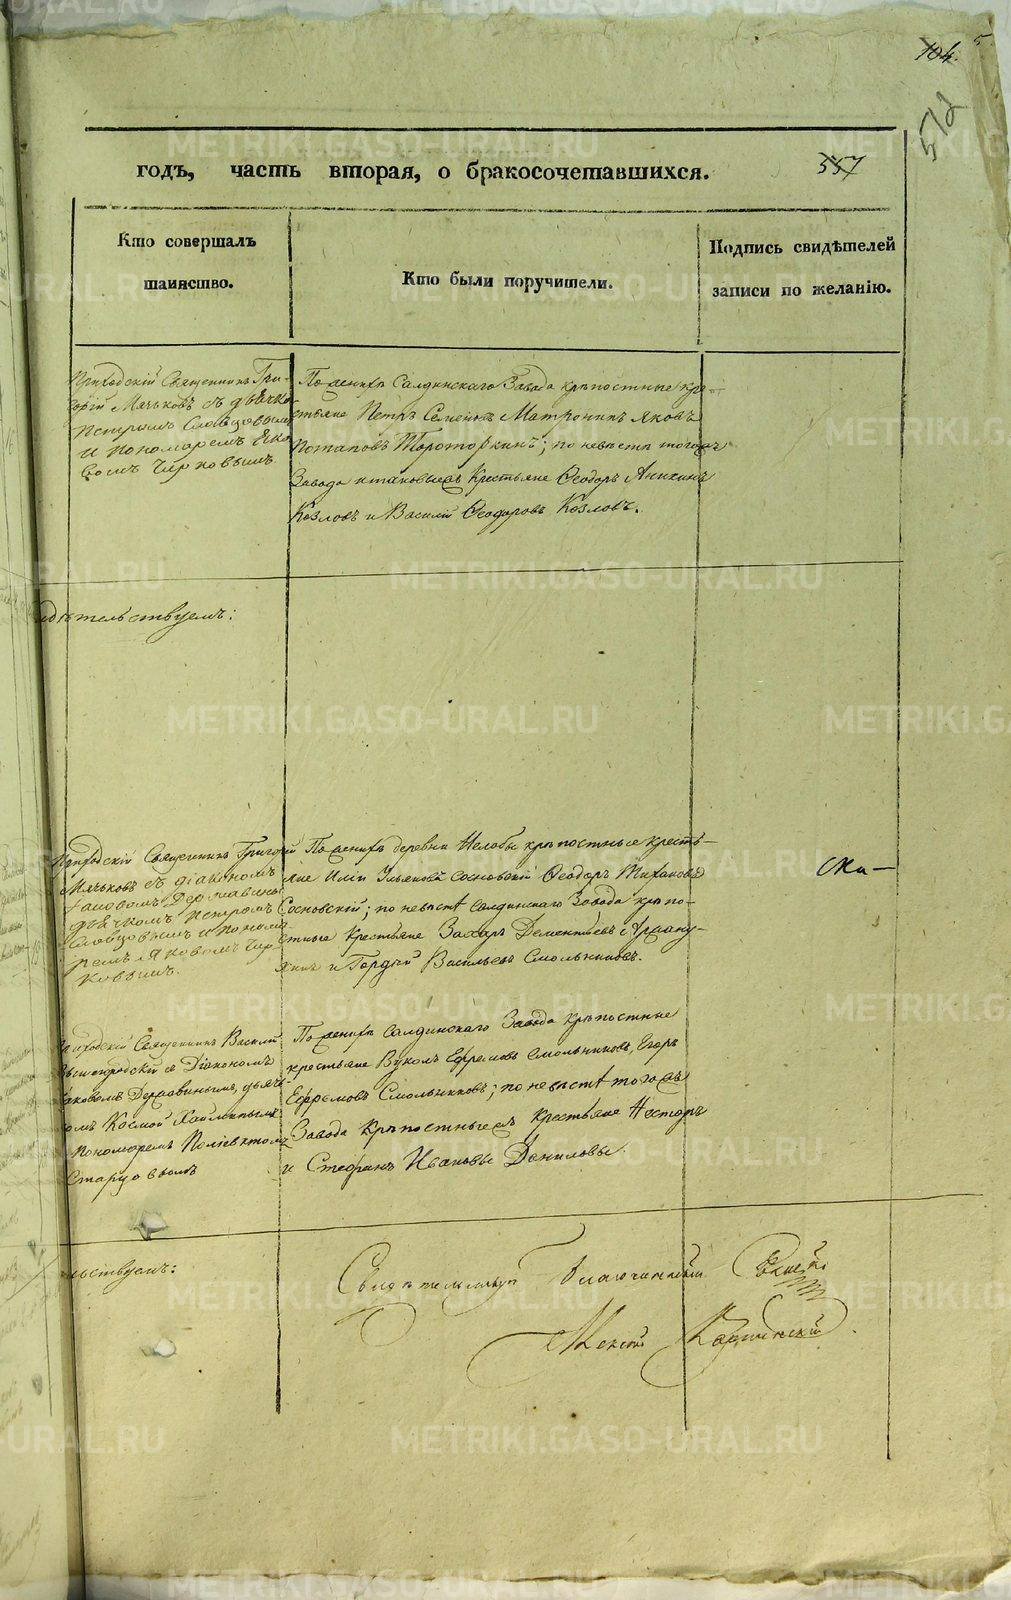 104.
572
годъ, часть вторая, о бракосочетавшихся.
557
Кто совершалъ
таинство.
Кто были поручители.
Подпись свидѣтелей
записи по желанію.
Приходскій Священникъ Гри-
горій Мячьковъ съ дьячкомъ
Петромъ Словцовымъ
и пономаремъ Яко
вомъ Чирковымъ.
По женихѣ Салдинскаго Завода крѣпостные кре-
стьяне Петръ Семеновъ Матрочинъ Яковъ
Потаповъ Тороторкинъ; по невѣстѣ тогожъ
Завода и таковыежъ Крестьяне Ѳеодоръ Аникинъ
Козловъ и Василій Ѳеодоровъ Козловъ.
дѣтельствуемъ:
Приходскій Священникъ Григорій
Мячьковъ съ діакономъ
Державины
дьячкомъ Петромъ
Словцовымъ и понома
ремъ Яковомъ Чир-
ковымъ.
По женихѣ деревни Нелобы крѣпостные кресть-
яне Ульяновъ Сосновскій Ѳеодоръ Тихановъ
Сосновскій; по невѣстѣ Салдинскаго Завода крѣпо-
стные Крестьяне Захаръ Дементьевъ
и Гордѣй Васильевъ Смольниковъ.
Приходскій Священникъ Василій
Діакономъ
Державинымъ, дьяч-
омъ Космой
Пономаремъ Поліевктомъ
Старцовымъ
По женихѣ Салдинскаго Завода крѣпостные
крестьяне Вуколъ Ефремовъ Смольниковъ, Егоръ
Ефремовъ Смольниковъ; по невѣстѣ тогожъ
Завода Крѣпостныежъ Крестьяне Несторъ
и Стефанъ Ивановы Даниловы.
льствуемъ:
METRIKI.GASO-URAL.RU